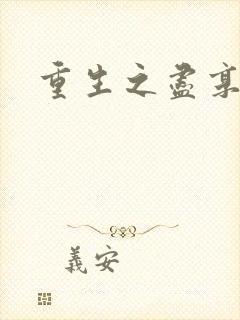 重生之盡
義安